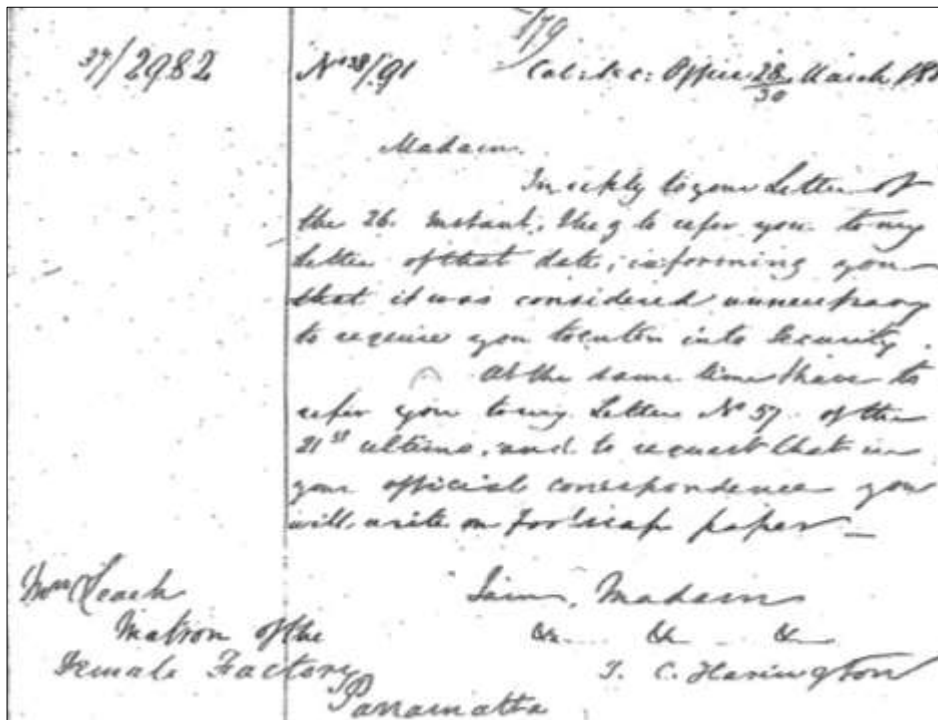 179
37/2982
No 38/91 Col: Sec: Office 28/30 March 183
Madam.
In reply to your Letter of
the 26. instant, I beg to refer you to my
Letter of that date, informing you
that it was considered unnecessary
to require you to enter into Security.
At the same time I have to
refer you to my Letter No 57 of the
21st ultimo, and to request that in
your official correspondence you
will write on foolscap paper —
I am, Madam
&c &c &c
T. C. Harington
Mrs Leach
Matron of the
Female Factory
Parramatta